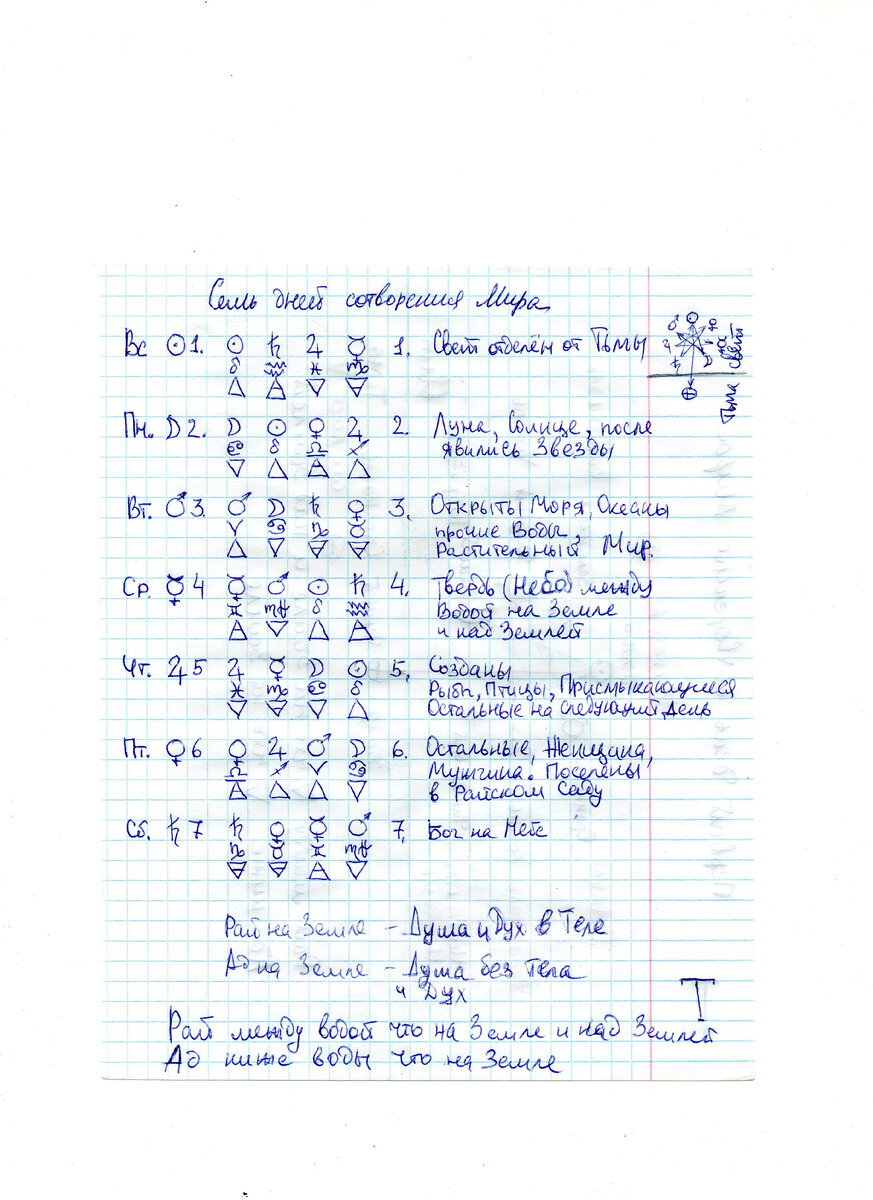 Семь дней сотворения Мира
Вс ☉ 1. ☉ ♄ ♃ ☿ 1. Свет отделён от Тьмы
δ ♒ ♓ ♍
△ 🜁 ▽ 🜃
Пн. ☽ 2. ☽ ☉ ♀ ♃ 2. Луна, Солнце, после
♋ δ ♎ ♐ явились Звезды
▽ △ 🜁 △
Вт. ♂ 3. ♂ ☽ ♄ ♀ 3. Открыты Моря, Океаны
♈ ♋ ♑ ♉ прочие Воды,
△ ▽ 🜃 🜃 Растительный Мир.
Ср. ☿ 4 ☿ ♂ ☉ ♄ 4. Твердь (Небо) между
♊ ♏ δ ♒ Водой на Земле
🜁 ▽ △ 🜁 и над Землей
Чт. ♃ 5 ♃ ☿ ☽ ☉ 5, Созданы
♓ ♍ ♋ δ Рыбы, Птицы, Присмыкающиеся
▽ 🜃 ▽ △ Остальные на следующий день
Пт. ♀ 6 ♀ ♃ ♂ ☽ 6. Остальные, Женщина,
♎ ♐ ♈ ♋ Мужчина. Поселены
🜁 △ △ ▽ в Райском Саду
Сб. ♄ 7 ♄ ♀ ☿ ♂ 7, Бог на Небе
♑ ♉ ♊ ♏
🜃 🜃 🜁 ▽
♂ ☉
♃
♄ ☽
на свет
Тьма
Рай на Земле – Душа и Дух в Теле
Ад на Земле – Душа без Тела
и Дух
Т
Рай между водой что на Земле и над Землей
Ад ниже воды что на Земле